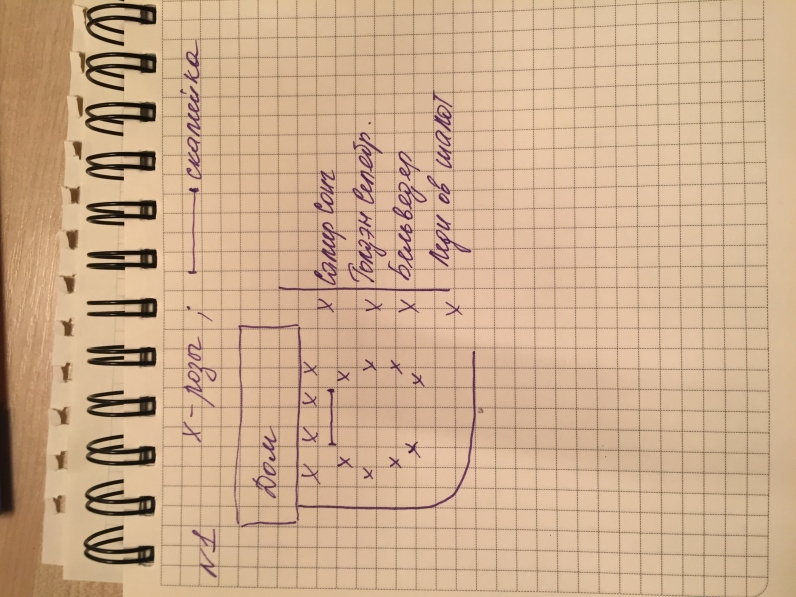 N1
X - розы ; скамейка
Дом
Х Х Х Х
Х Сэмер Сонг
Х Голдэн Селебр.
Х Бельведер
Х Леди ов шалот